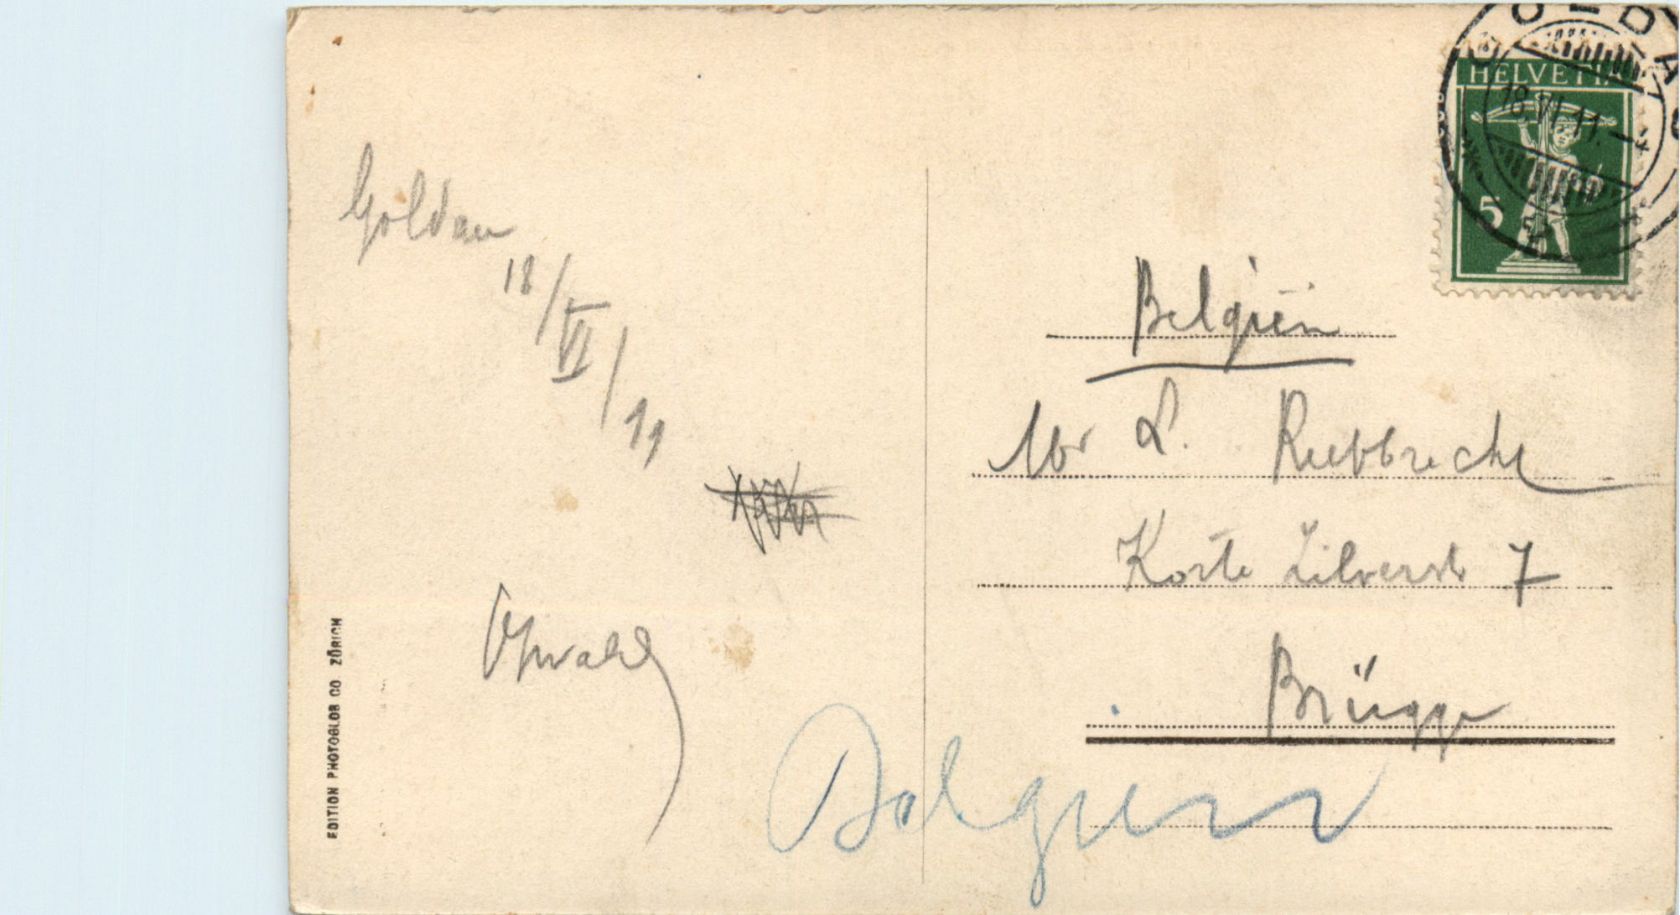 GOLDAU
18.VI.11.–4
HELVETIA
5
Goldau
18/VI/11
Belgien
Mr L. Ruebbrecht
Korte Zilverstr 7
Brügge
Belgien
EDITION PHOTOGLOB CO ZÜRICH